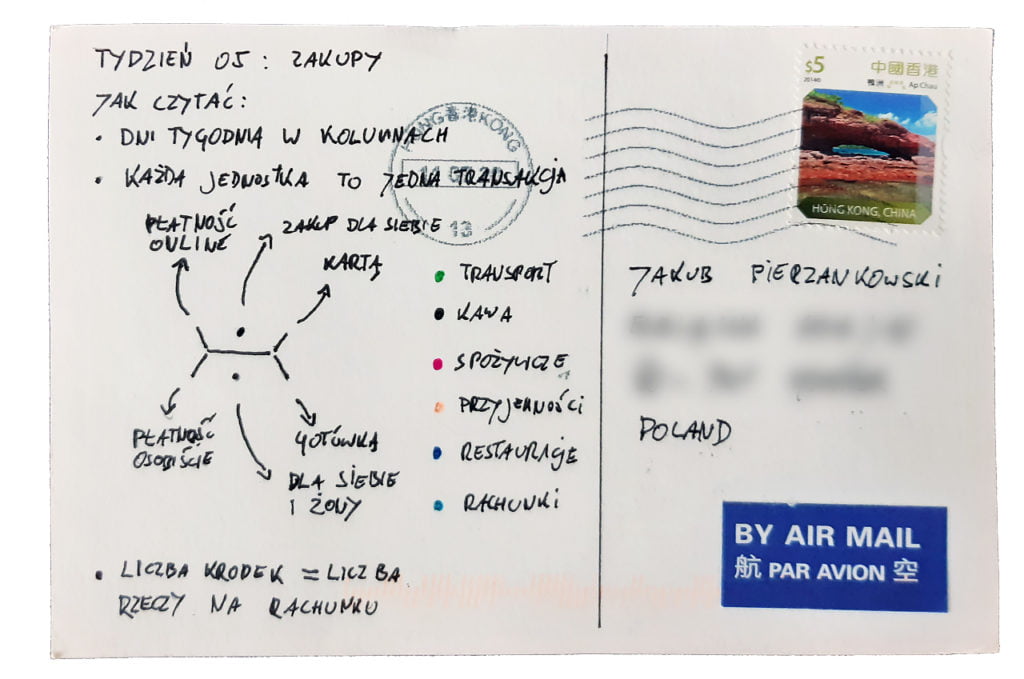 TYDZIEŃ 05: ZAKUPY
JAK CZYTAĆ:
• DNI TYGODNIA W KOLUMNACH
• KAŻDA JEDNOSTKA TO JEDNA TRANSAKCJA
PŁATNOŚĆ
ONLINE
ZAKUP DLA SIEBIE
KARTĄ
PŁATNOŚĆ
OSOBIŚCIE
GOTÓWKĄ
DLA SIEBIE
I ŻONY
• TRANSPORT
• KAWA
• SPOŻYWCZE
• PRZYJEMNOŚCI
• RESTAURACJE
• RACHUNKI
• LICZBA KROPEK = LICZBA
RZECZY NA RACHUNKU
香港 KONG
13
$5
中國香港
鴨洲 Ap Chau
HONG KONG, CHINA
JAKUB PIERZANKOWSKI
POLAND
BY AIR MAIL
航 PAR AVION 空